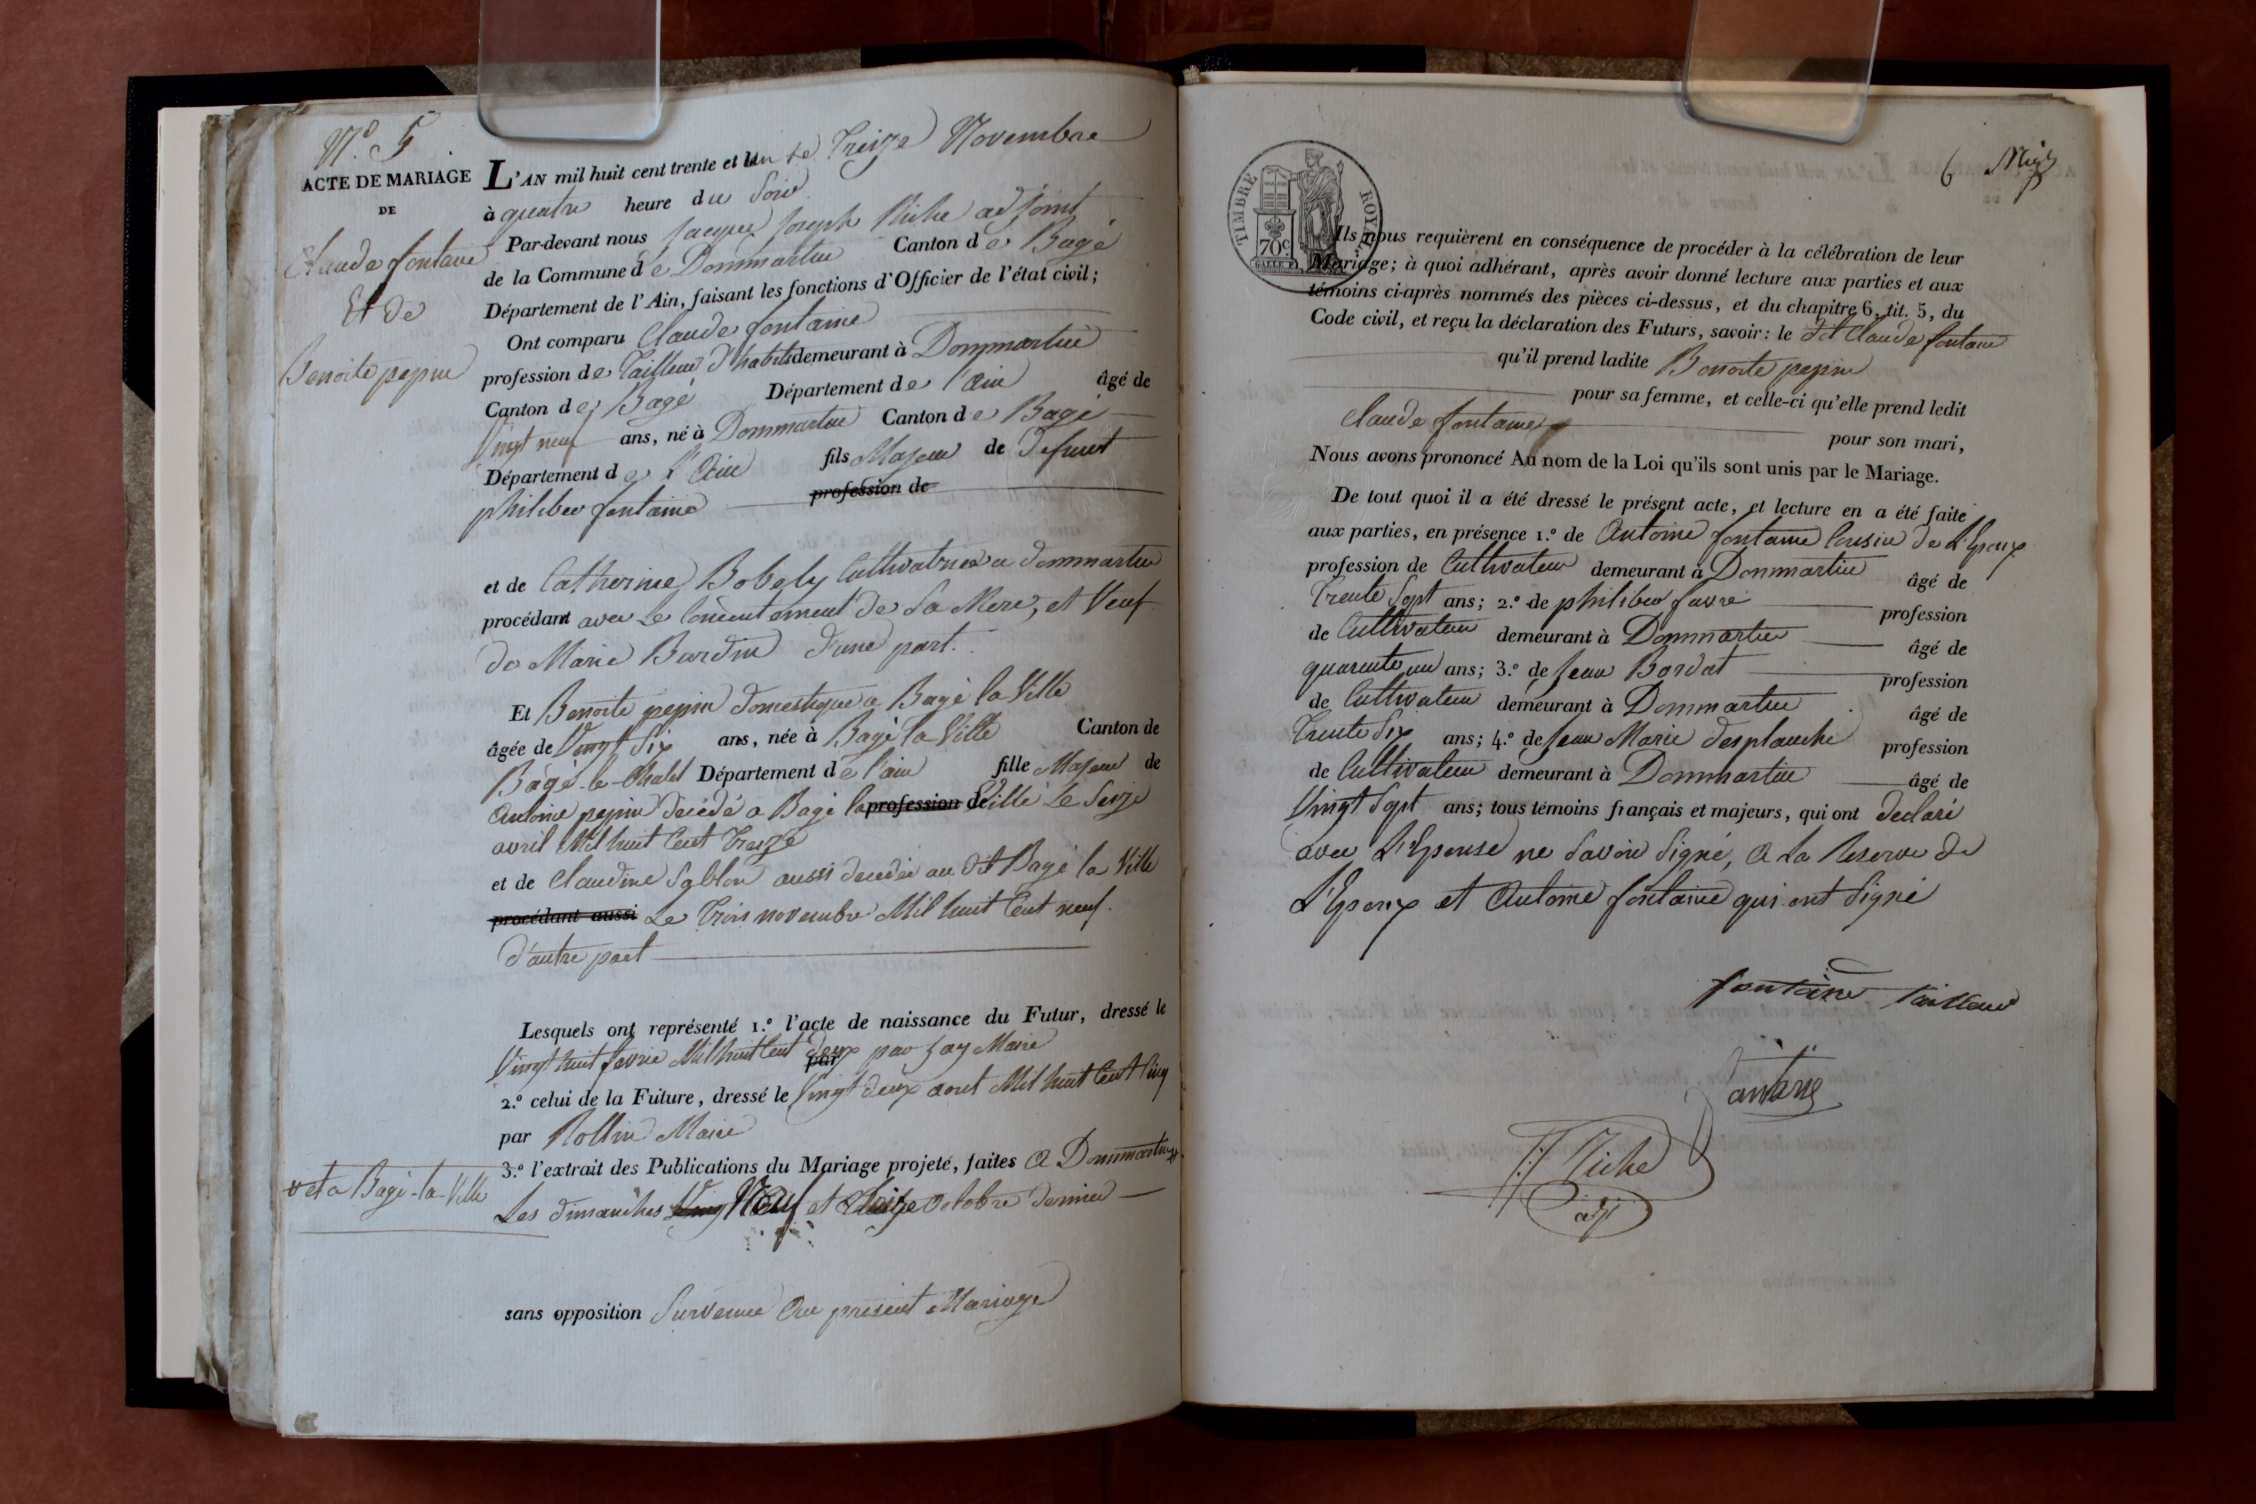 N.o 5
ACTE DE MARIAGE
DE
Claude fontaine
Et de
Benoite pepin
L'AN mil huit cent trente et un le Treize Novembre
à quatre heure du Soir
Par-devant nous Jacques Joseph Niche adjoint
de la Commune de Dommartin Canton de Bagé
Département de l'Ain, faisant les fonctions d'Officier de l'état civil;
Ont comparu Claude fontaine
profession de Tailleur d'habits demeurant à Dommartin
Canton de Bagé Département de l'Ain âgé de
Vingt neuf ans, né à Dommartin Canton de Bagé
Département de L'Ain fils Majeur de Defunt
philiber fontaine profession de
et de Catherine Boboly Cultivatrice a dommartin
procédant avec Le Consentement de Sa Mere, et Veuf
de Marie Burdin d'une part.
Et Benoite pepin domestique a Bagé la Ville
âgée de Vingt Six ans, née à Bagé la Ville Canton de
Bagé-le-Chatel Département de l'ain fille Majeur de
Antoine pepin decédé a Bagé la profession de Ville Le Seize
avril Mil huit Cent Treize
et de Claudine Sablon aussi decedée au dit Bagé la Ville
procédant aussi Le Trois novembre Mil huit Cent neuf.
d'autre part
Lesquels ont représenté 1.o l'acte de naissance du Futur, dressé le
Vingt huit fevrie Mil huit Cent deux par Jay Maire
par
2.o celui de la Future, dressé le Vingt deux aout Mil huit Cent Cinq
par Rollin Maire
3.o l'extrait des Publications du Mariage projeté, faites a Dommartin
et a Bagé-la-Ville
Les dimanches Neuf et Seize octobre dernier
sans opposition Survenue Au présent Mariage
6
TIMBRE ROYAL
70c
Ils nous requièrent en conséquence de procéder à la célébration de leur
Mariage; à quoi adhérant, après avoir donné lecture aux parties et aux
témoins ci-après nommés des pièces ci-dessus, et du chapitre 6, tit. 5, du
Code civil, et reçu la déclaration des Futurs, savoir: le dit Claude fontaine
qu'il prend ladite Benoite pepin
pour sa femme, et celle-ci qu'elle prend ledit
Claude fontaine
pour son mari,
Nous avons prononcé Au nom de la Loi qu'ils sont unis par le Mariage.
De tout quoi il a été dressé le présent acte, et lecture en a été faite
aux parties, en présence 1.o de Antoine fontaine Cousin de L'Epoux
profession de Cultivateur demeurant à Dommartin âgé de
Trente Sept ans; 2.o de philiber favre profession
de Cultivateur demeurant à Dommartin âgé de
quarente un ans; 3.o de Jean Bordat profession
de Cultivateur demeurant à Dommartin âgé de
Trente Six ans; 4.o de Jean Marie desplanche profession
de Cultivateur demeurant à Dommartin âgé de
Vingt Sept ans; tous témoins français et majeurs, qui ont declaré
avec L'Epouse ne Savoir Signé, A La Reserve de
L'Epoux et Antoine fontaine qui ont Signé
fontaine tailleur
Niche
adj